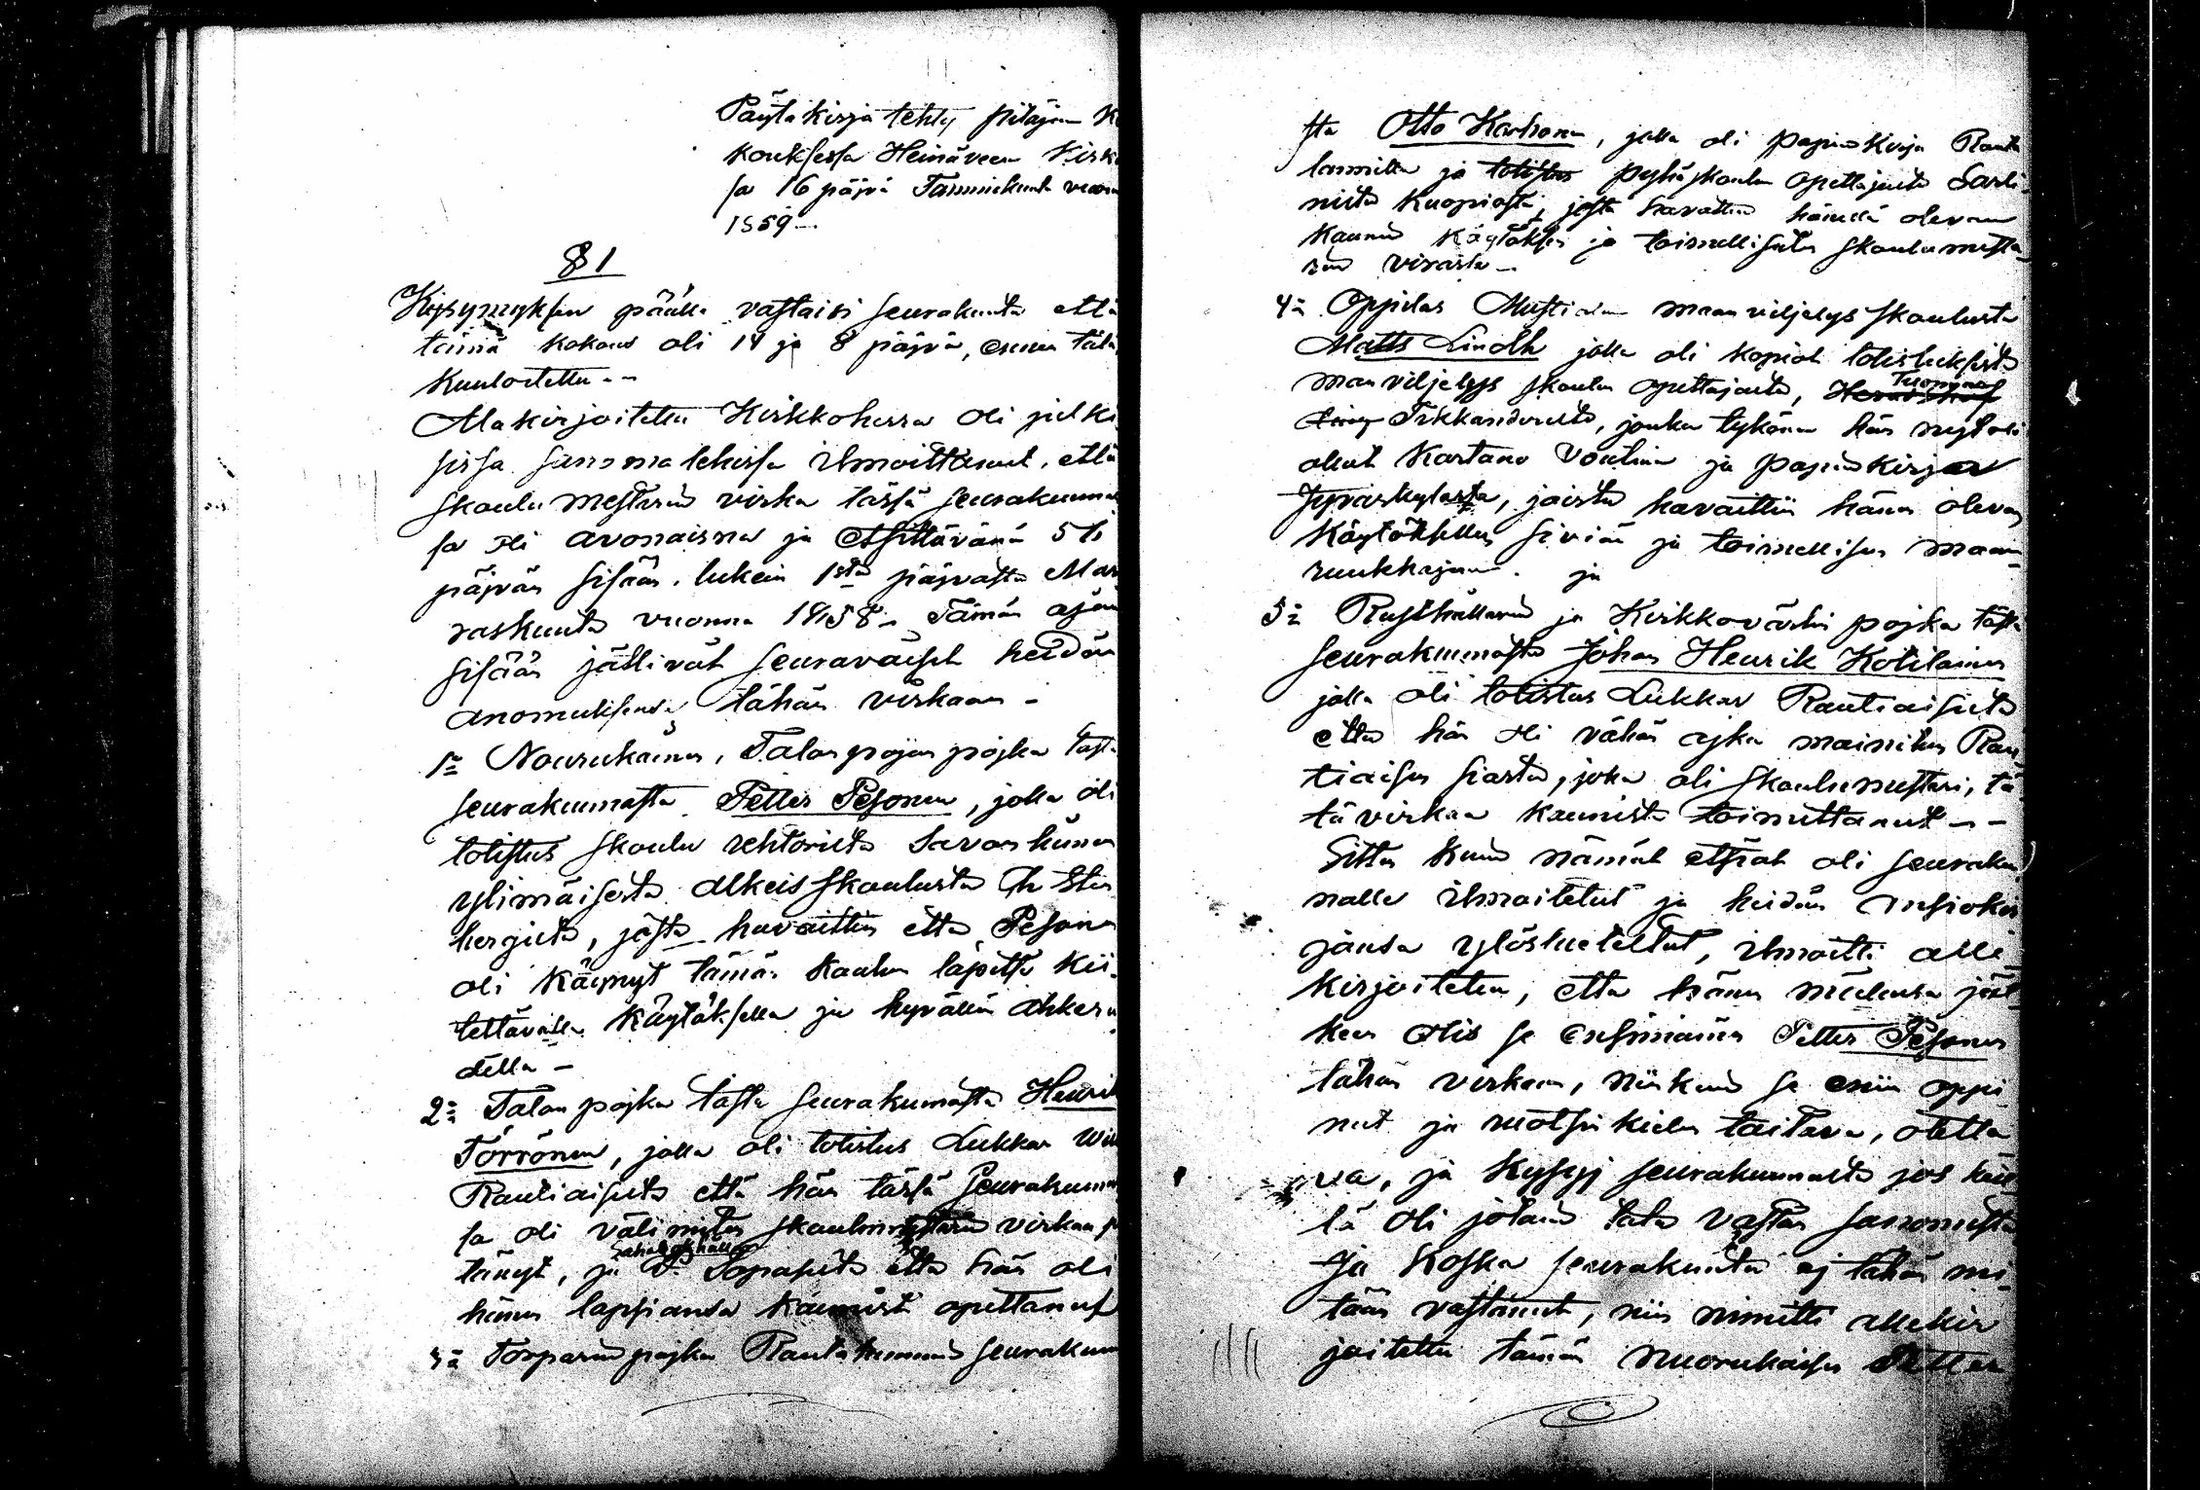 Päytäkirja tehty pitäjän K
kouksessa Heinäveen Kirk
sa 16 päjvä Tammikuuta vuon
1859 -
§ 1
Kysymyksen päälle vastaisi seurakunta että
tämä kokous oli 14 ja 8 päjvä, ennen tätä
kuulotettu --
Allakirjoitettu Kirkkoherra oli julki
sissa sanomalehissa ilmoittanut, että
skoulumestarin virka tässä seurakunna
sa oli avonaisna ja etsittävänä 56
päjvän sisään, lukein 1stä päjvästä Mar
raskuuta vuonna 1858 - Tämän ajan
sisään jättivät seuravaiset heidän
anomuksensa tähän virkaan -
1= Nourukainen, Talonpojan pojka tästä
seurakunnasta Petter Pesonen, jolla oli
totistus skoulu rehtorista Savonlinnan
ylimäisestä alkeisskoulusta
bergistä, josta havaittin että Pesonen
oli käynyt tämän koulun läpitse kii-
tettävällä käytöksellä ja hyvällä ahkeru
della -
2= Talon pojka tästä seurakunnasta Henrik
Törrönen, jolla oli totistus Lukkar
Rautiaiselta että hän tässä seurakunna
sa oli väli mestarin virkaa
tänyt, ja että hän oli
hänen lapsiansa kaunisti opettanut
3= Torparin pojka Rautalammin seurakun
sta Otto Karhonen, jolla oli papinkirja Rauta
lammilta ja totistus pyhäskoulun opettajalta Sarli-
nilta Kuopiosta, josta havattin hänellä olevan
kaunis käytöksen ja toimellisuden skoulumesta-
rin virasta -
4= Oppilas Mustialan maanviljelys skoulusta
Matts Lindh jolla oli kopiot totistuksista
maanviljelys skoulun opettajalta,
, jonka tykönä hän nyt oli
ollut kartano Voutina ja papinkirjan
Jyväskylästä, joista havaittiin hänen olevan
käytökselles siviän ja toimellisen maan-
ruukkajan ja
5= Rusthållarin ja Kirkkovärtin pojka tästä
seurakunnasta Johan Henrik Kotilainen
jolla oli totistus Lukkar Rautiaiselta
että hän oli vähän ajka mainitun Rau
tiaisen siasta, joka oli skoulumestari, tä
tä virkaa kaunista toimittanut --
Sitten kuin nämät etsiät oli seurakun
nalle ilmoitetut ja heidän ansiokir
jansa ylösluetellut, ilmoitti alle
kirjoitettu, että hänen mielensä jäl
keen olis se ensimäinen Petter Pesonen
tähän virkaan, niinkuin se enin oppi
nut ja ruotsin kielen taitava, otetta
va, ja kysyj seurakunnalta jos heil
lä oli jotain tätä vastan sanomista
Ja koska seurakunta ej tähän mi
tään vastannut, niin nimitti allekir
joitettu tämän nuorukaisen Petter